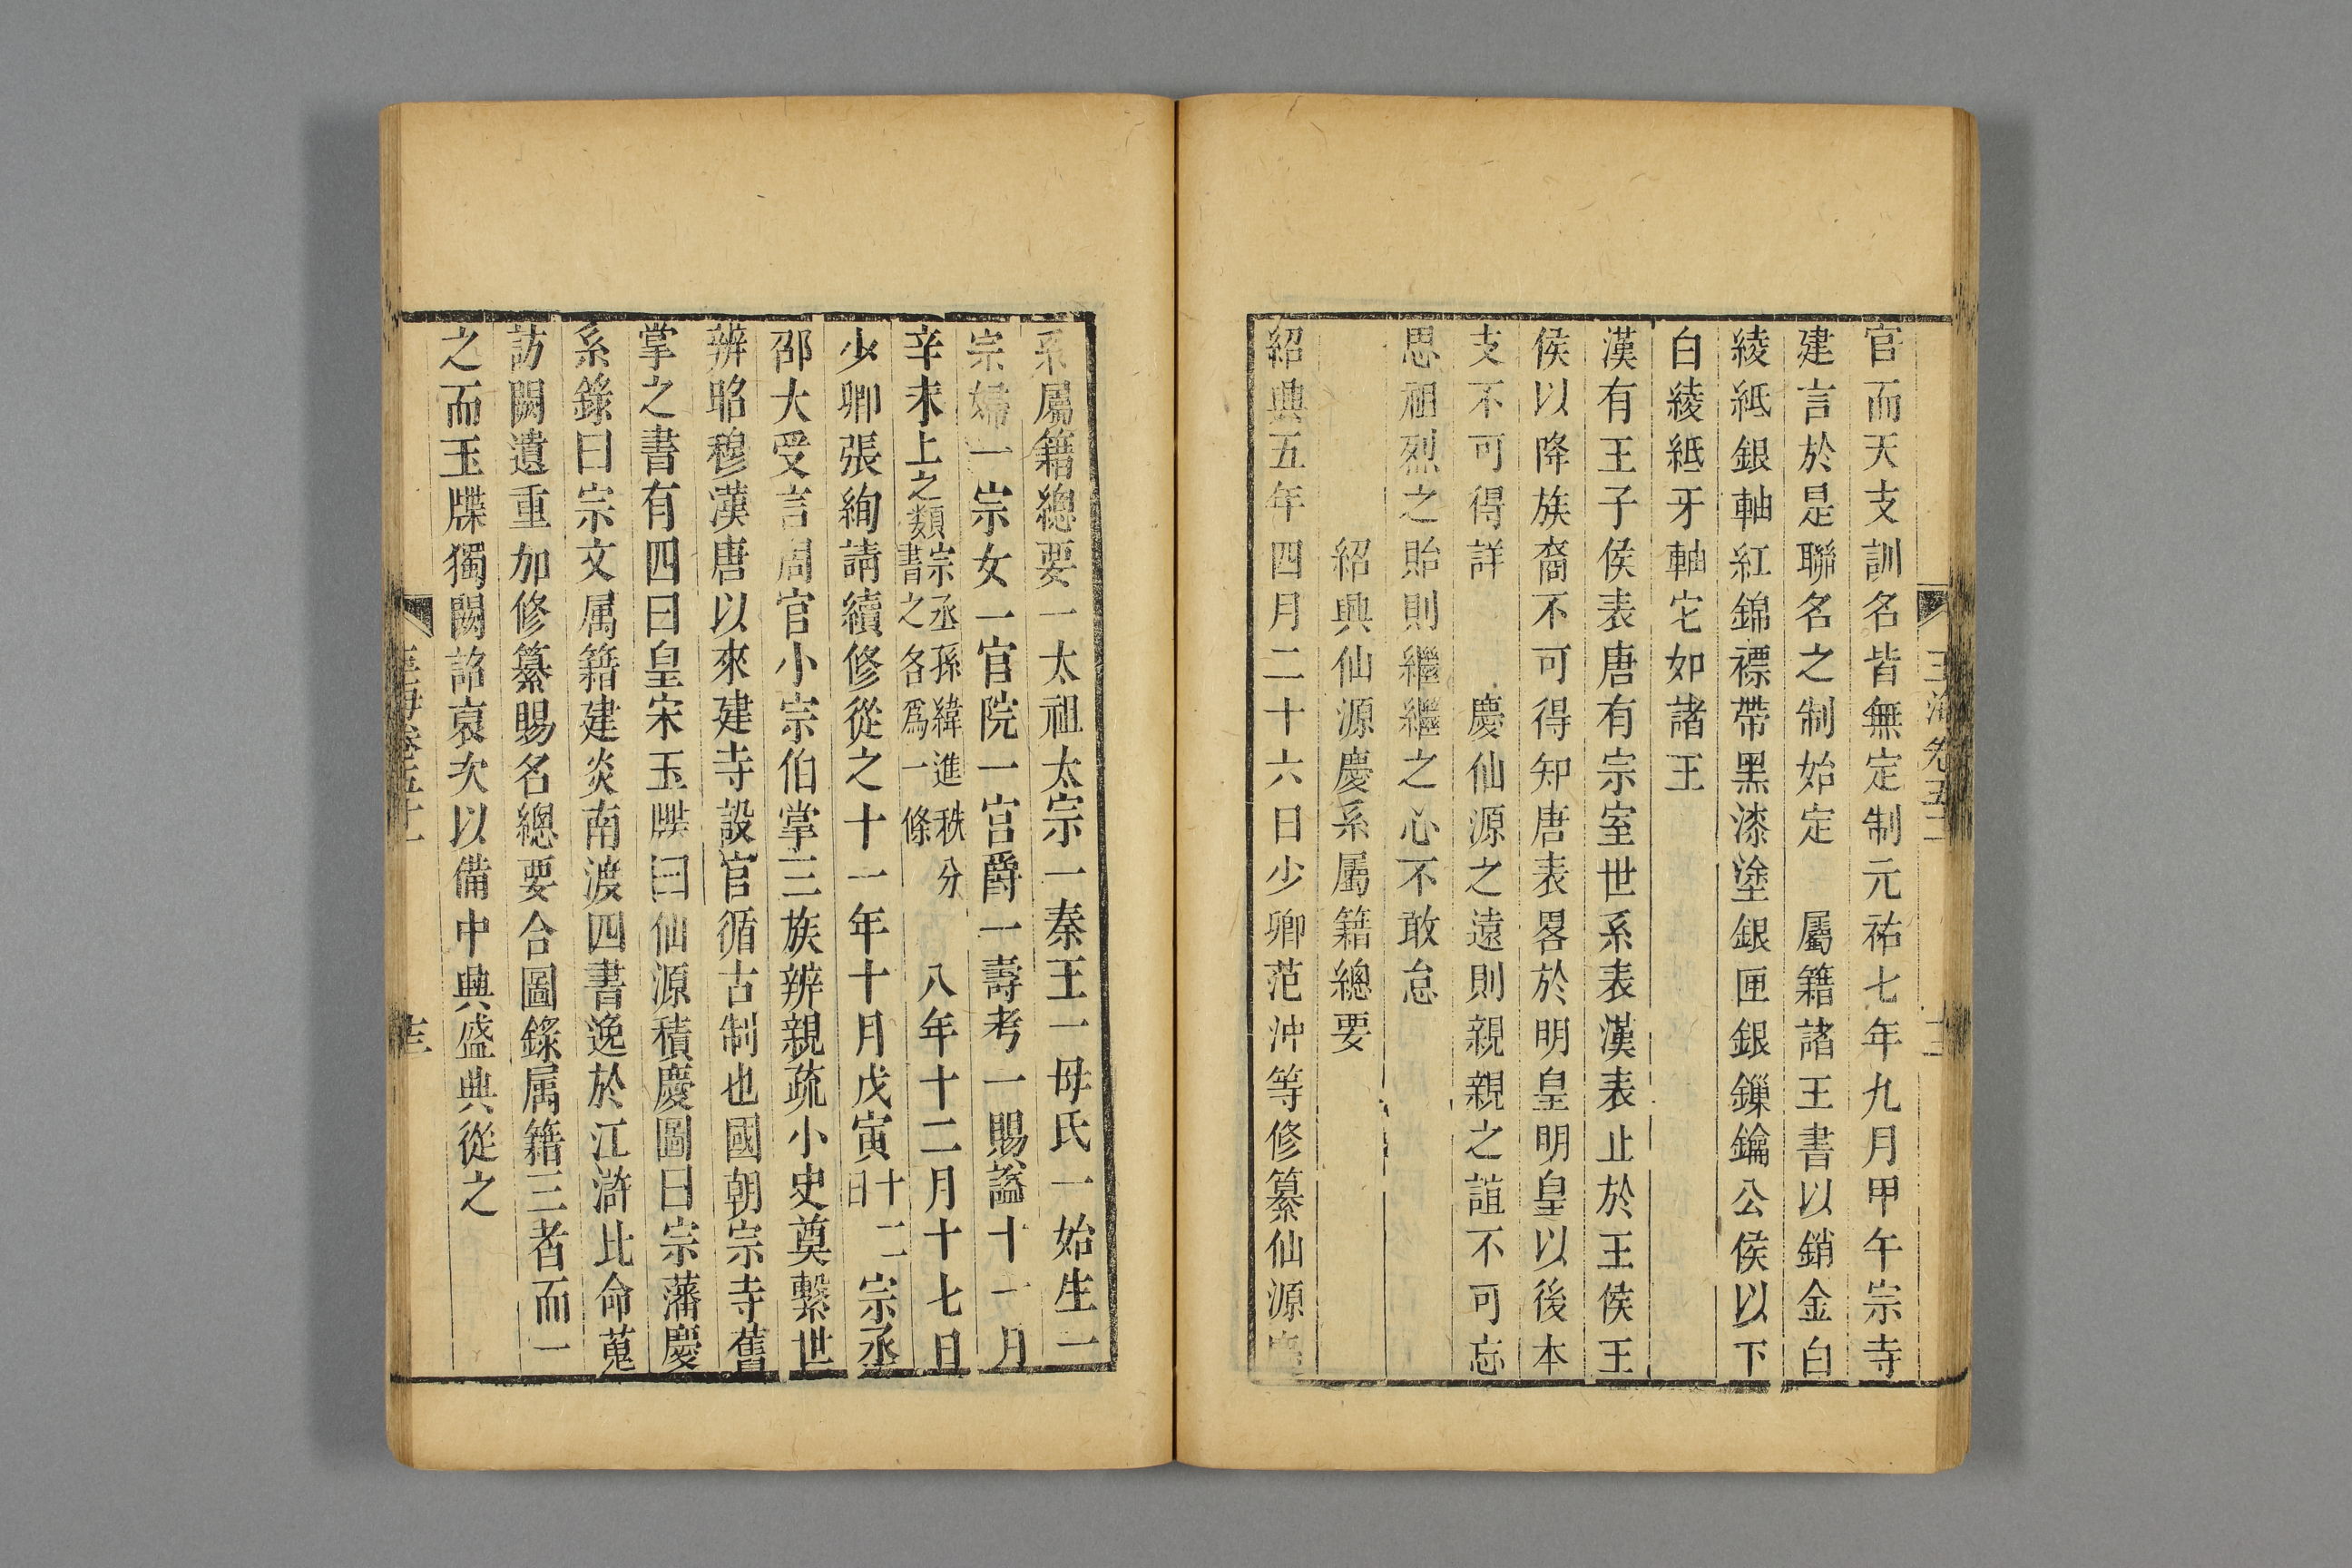 官而天支訓名皆無定制元祐七年九月甲午宗寺
建言於是聯名之制始定　屬籍諸王書以銷金白
綾紙銀軸紅錦褾帶黑漆塗銀匣銀鏁鑰公侯以下
白綾紙牙軸它如諸王
漢有王子侯表唐有宗室世系表漢表止於王侯王
侯以降族裔不可得知唐表畧於明皇明皇以後本
支不可得詳　慶仙源之遠則親親之誼不可忘
思祖烈之貽則繼繼之心不敢怠
紹興仙源慶系屬籍總要
紹興五年四月二十六日少卿范沖等修纂仙源慶
系屬籍總要一太祖太宗一秦王一母氏一始生一
宗婦一宗女一官院一宫爵一壽考一賜謚十一月
辛未上之類宗丞孫緯進秩分書之各爲一條　八年十二月十七日
少卿張絢請續修從之十一年十月戊寅十二日宗丞
邵大受言周官小宗伯掌三族辨親疏小史奠繫世
辨昭穆漢唐以來建寺設官循古制也國朝宗寺舊
掌之書有四曰皇宋玉牒曰仙源積慶圖曰宗藩慶
系錄曰宗文属籍建炎南渡四書逸於江滸比命蒐
訪闕遺重加修纂賜名總要合圖錄属籍三者而一
之而玉牒獨闕詔裒次以備中典盛典從之